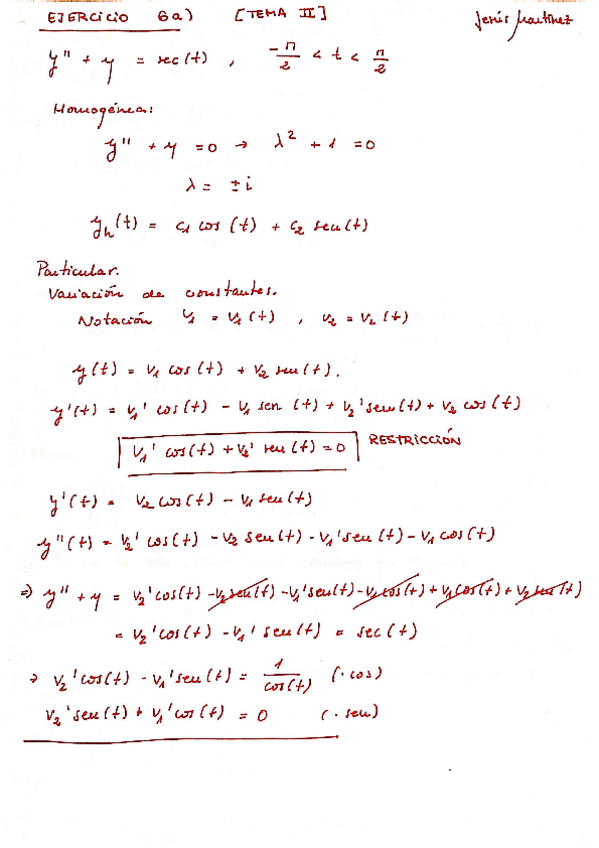 EJERCICIO 6a) [TEMA II] Jesús Martínez
y'' + y = sec(t) , -π/2 < t < π/2
Homogénea:
y'' + y = 0 → λ² + 1 = 0
λ = ± i
y_h(t) = c₁ cos(t) + c₂ sen(t)
Particular.
Variación de constantes.
Notación v₁ = v₁(t) , v₂ = v₂(t)
y(t) = v₁ cos(t) + v₂ sen(t).
y'(t) = v₁' cos(t) - v₁ sen(t) + v₂' sen(t) + v₂ cos(t)
v₁' cos(t) + v₂' sen(t) = 0 RESTRICCIÓN
y'(t) = v₂ cos(t) - v₁ sen(t)
y''(t) = v₂' cos(t) - v₂ sen(t) - v₁' sen(t) - v₁ cos(t)
⇒ y'' + y = v₂' cos(t) - v₂ sen(t) - v₁' sen(t) - v₁ cos(t) + v₁ cos(t) + v₂ sen(t)
= v₂' cos(t) - v₁' sen(t) = sec(t)
→ v₂' cos(t) - v₁' sen(t) = 1/cos(t) (· cos)
v₂' sen(t) + v₁' cos(t) = 0 (· sen)